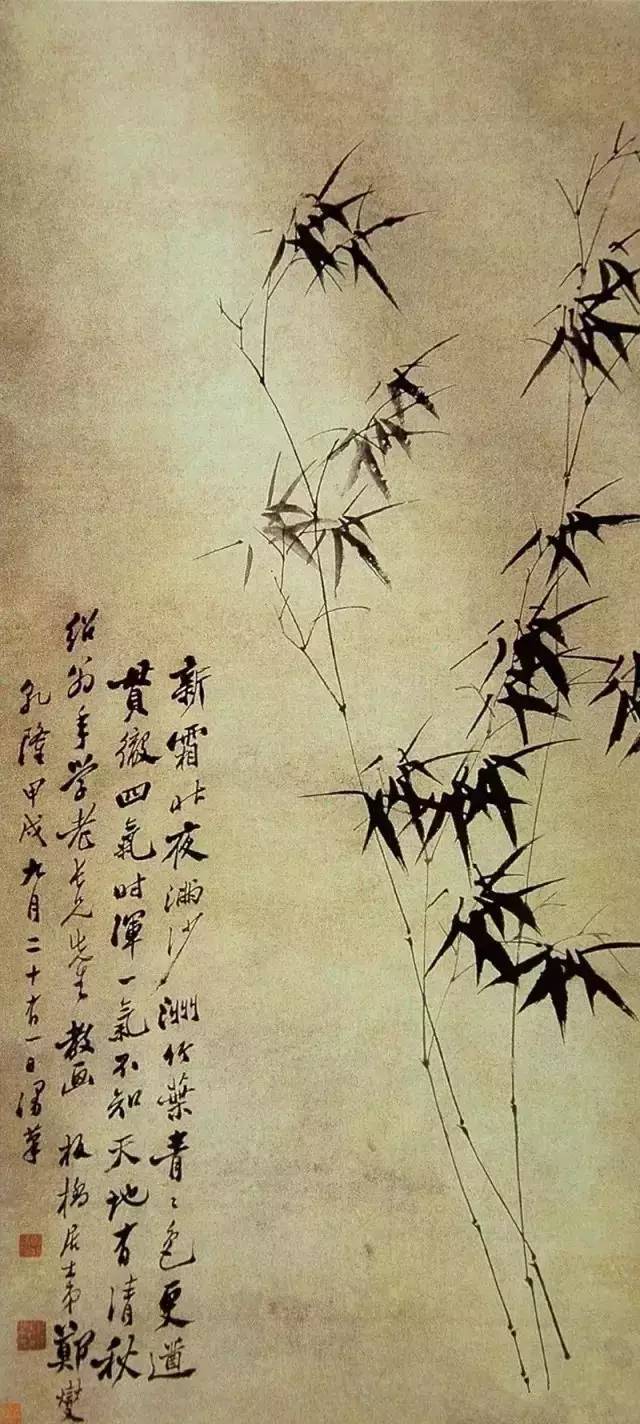 新霜昨夜滿沙洲竹葉青〻色更遒
貫徹四氣時渾一氣不知天地有清秋
紹翁年学老長兄先生教画 板橋居士弟鄭燮
乾隆甲戌九月二十有一日